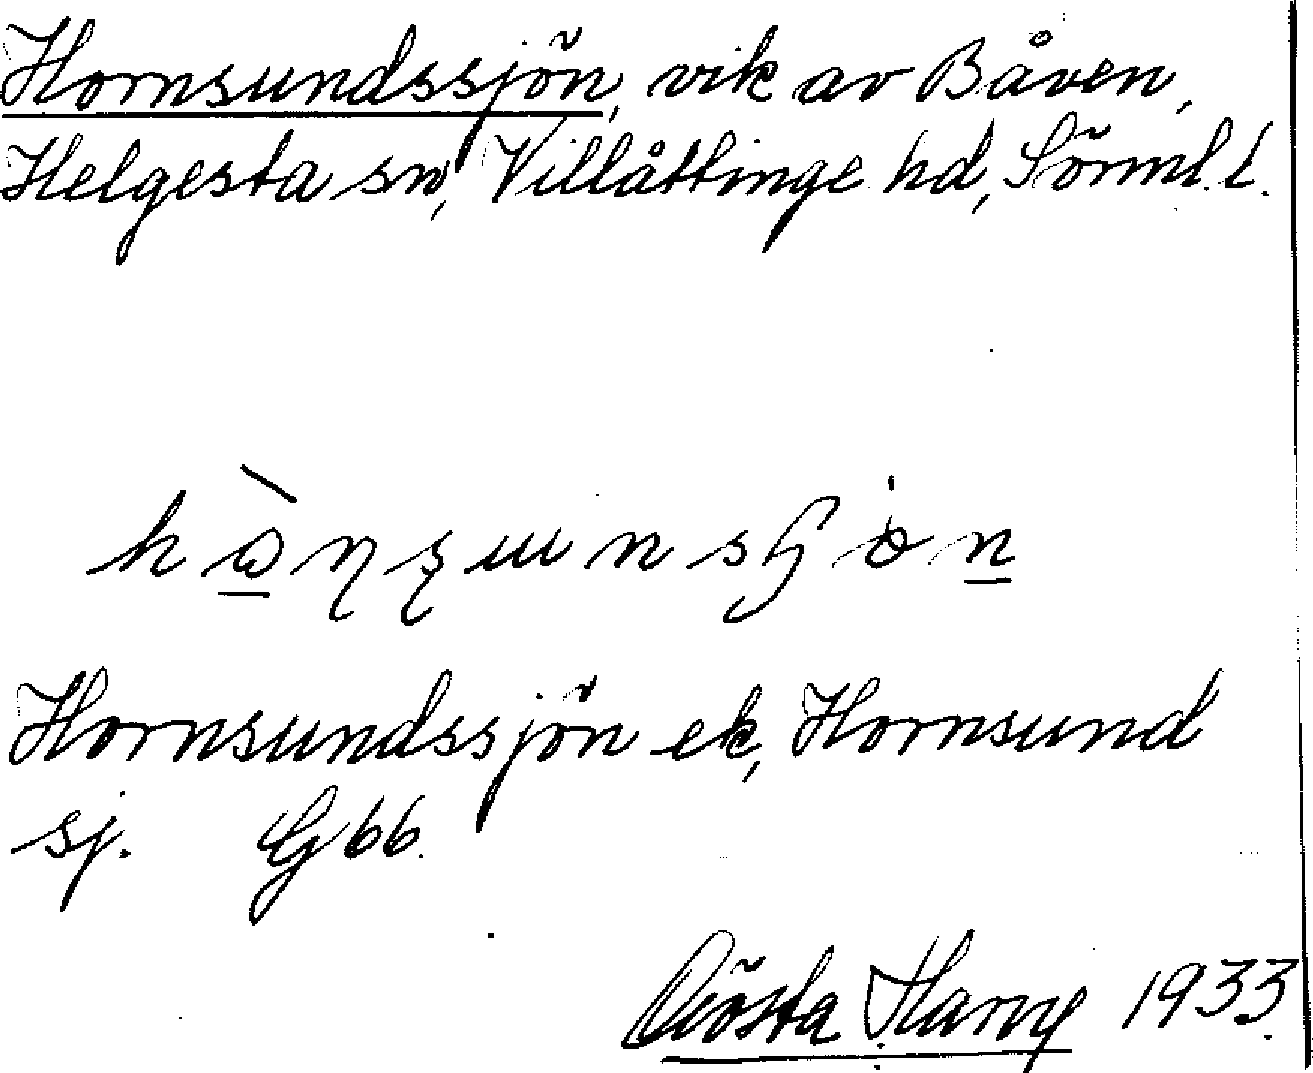 Hornsundssjön, vik av Båven,
Helgesta sn, Villåttinge hd, Sörml. l.
Hornsundssjön ek, Hornsund
sj. G 66.
Gösta 1933.